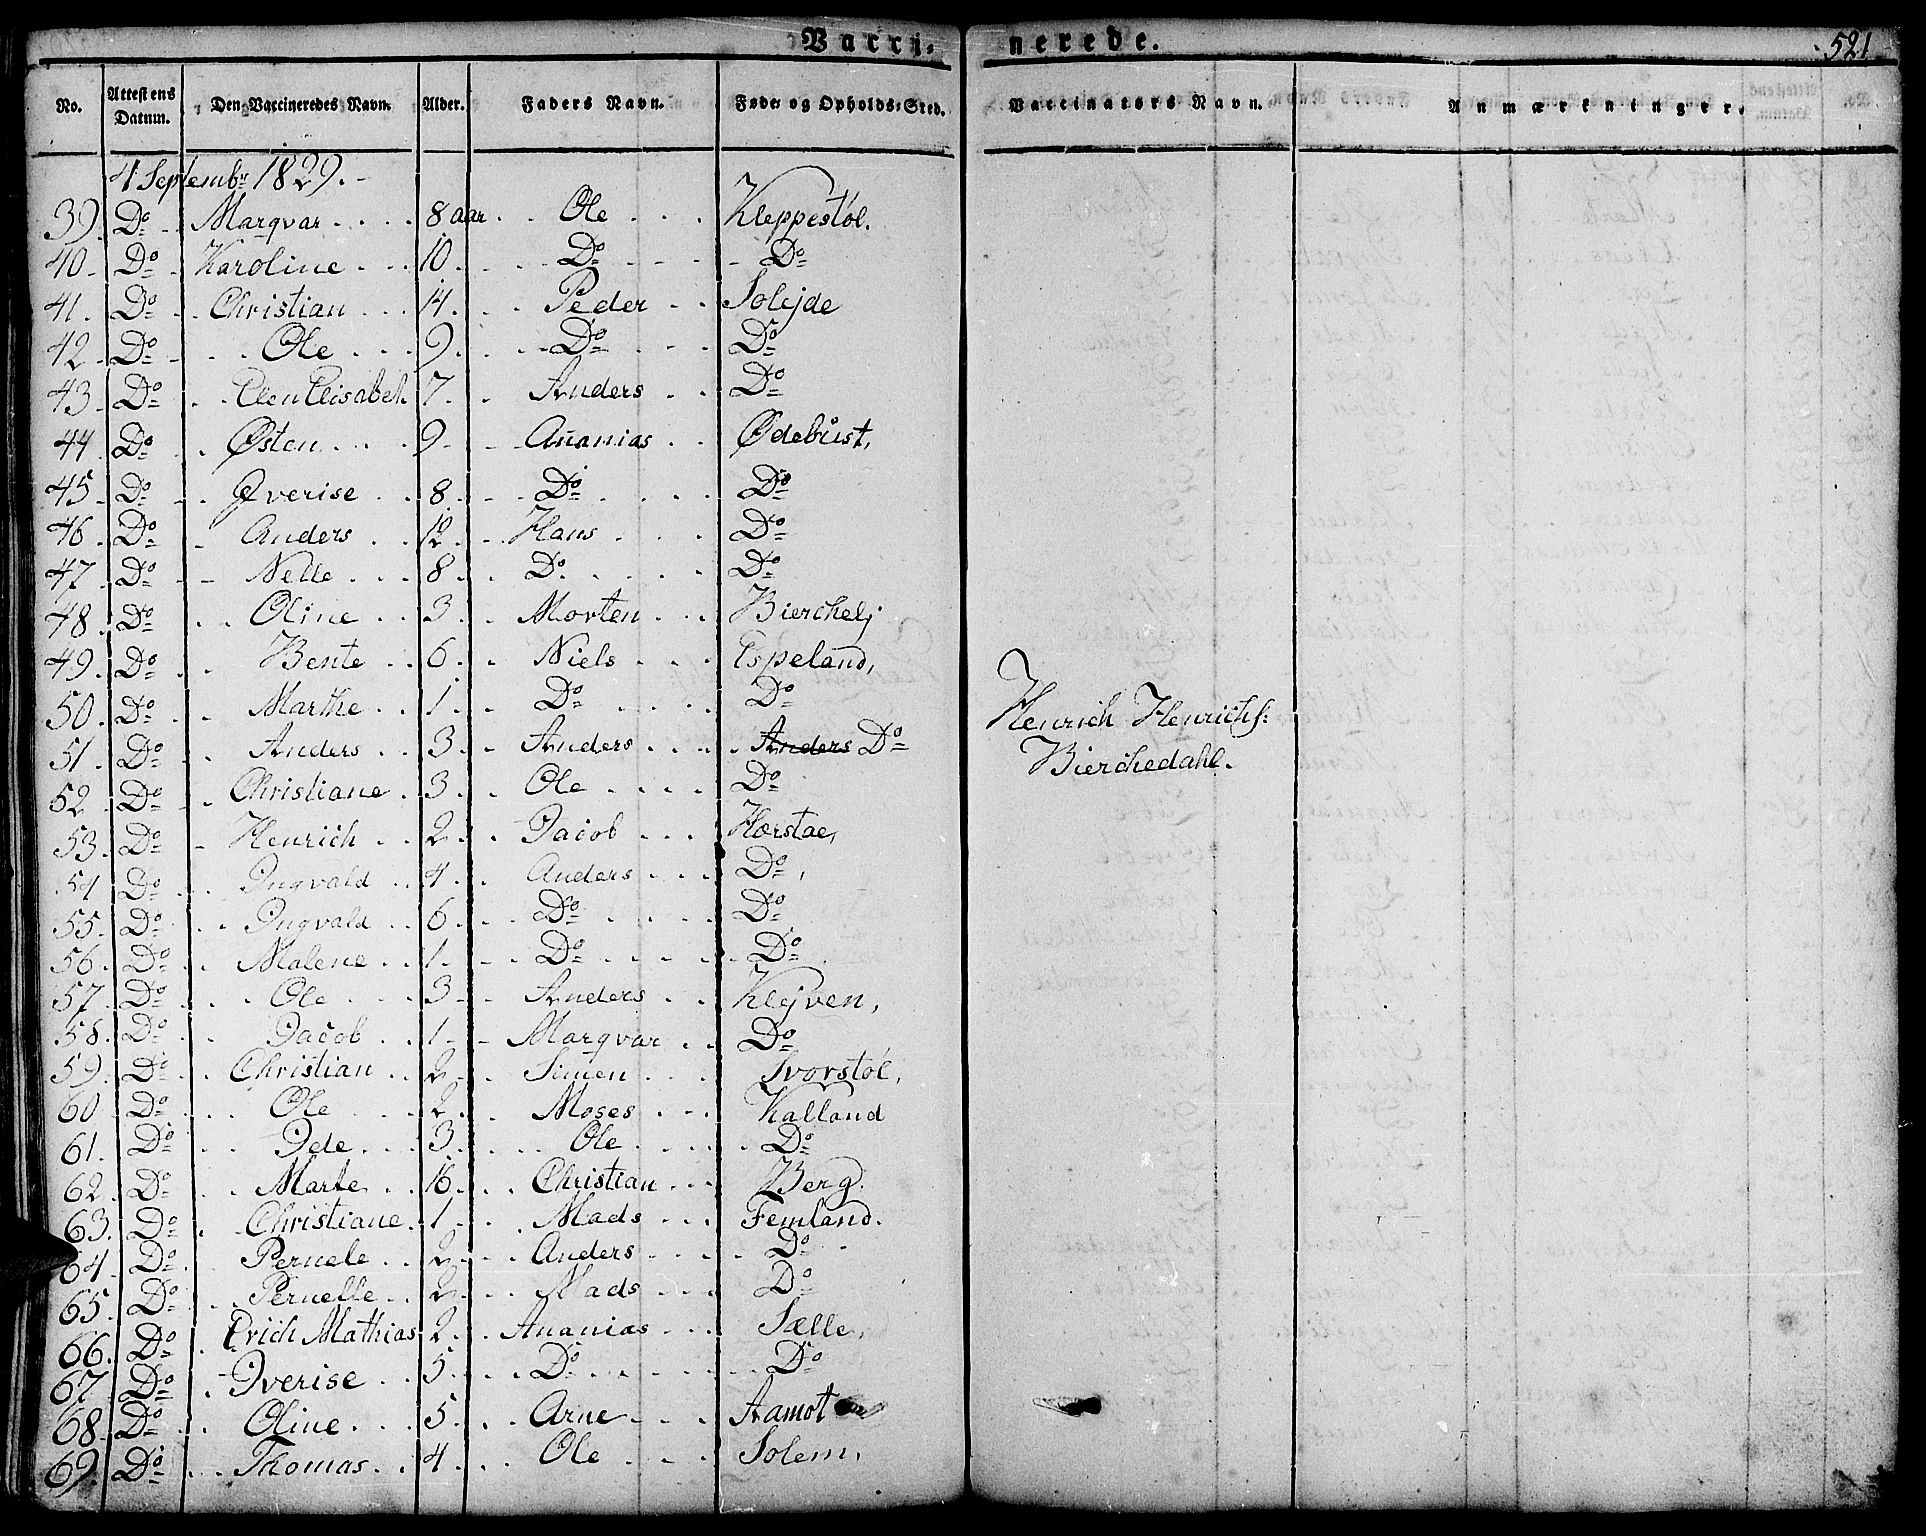 Vacci- nerede. 521
No. Attestens Datum. Den Vaccineredes Navn. Alder. Faders Navn. Føde- og Opholds-Sted. Vaccinators Navn. Anmærkninger.
4 Septembr 1829.
39. Do Marqvar 8 aar Ole Kleppestøl.
40 Do Karoline 10 Do Do
41. Do Christian 14 Peder Solejde
42 Do Ole 9 Do Do
43 Do Elen Elisabet 7 Anders Do
44 Do Østen 9 Ananias Ødebust,
45 Do Iverise 8 Do Do
46 Do Anders 12 Hans Do
47 Do Nelle 8 Do Do
48 Do Oline 3 Morten Bierchelj
49. Do Bente 6 Niels Espeland,
50. Do Marthe 1 Do Do
51. Do Anders 3 Anders Anders Do
52 Do Christiane 3 Ole Do
53. Do Henrich 2 Jacob Hørstae,
54 Do Ingvald 4 Anders Do,
55 Do Ingvald 6 Do Do
56. Do Malene 1 Do Do
57. Do Ole 3 Anders Klejven,
58. Do Jacob 1 Marqvar Do
59. Do Christian 2 Simen Svorstøl,
60 Do Ole 2 Moses Kalland
61. Do Ole Do
3
62. Do Marte 16 Christian Berg.
63. Do Christiane 1 Mads Femland.
64 Do Pernele 2 Anders Do
65. Do Pernelle 2 Mads Do
66. Do Erich Mathias 2 Ananias Sælle,
67 Do Iverise 5 Do Do
68. Do Oline 5 Arne Aamot
69. Do Thomas 4 Ole Solem,
Henrich Henrichs:
Bierchedahl.